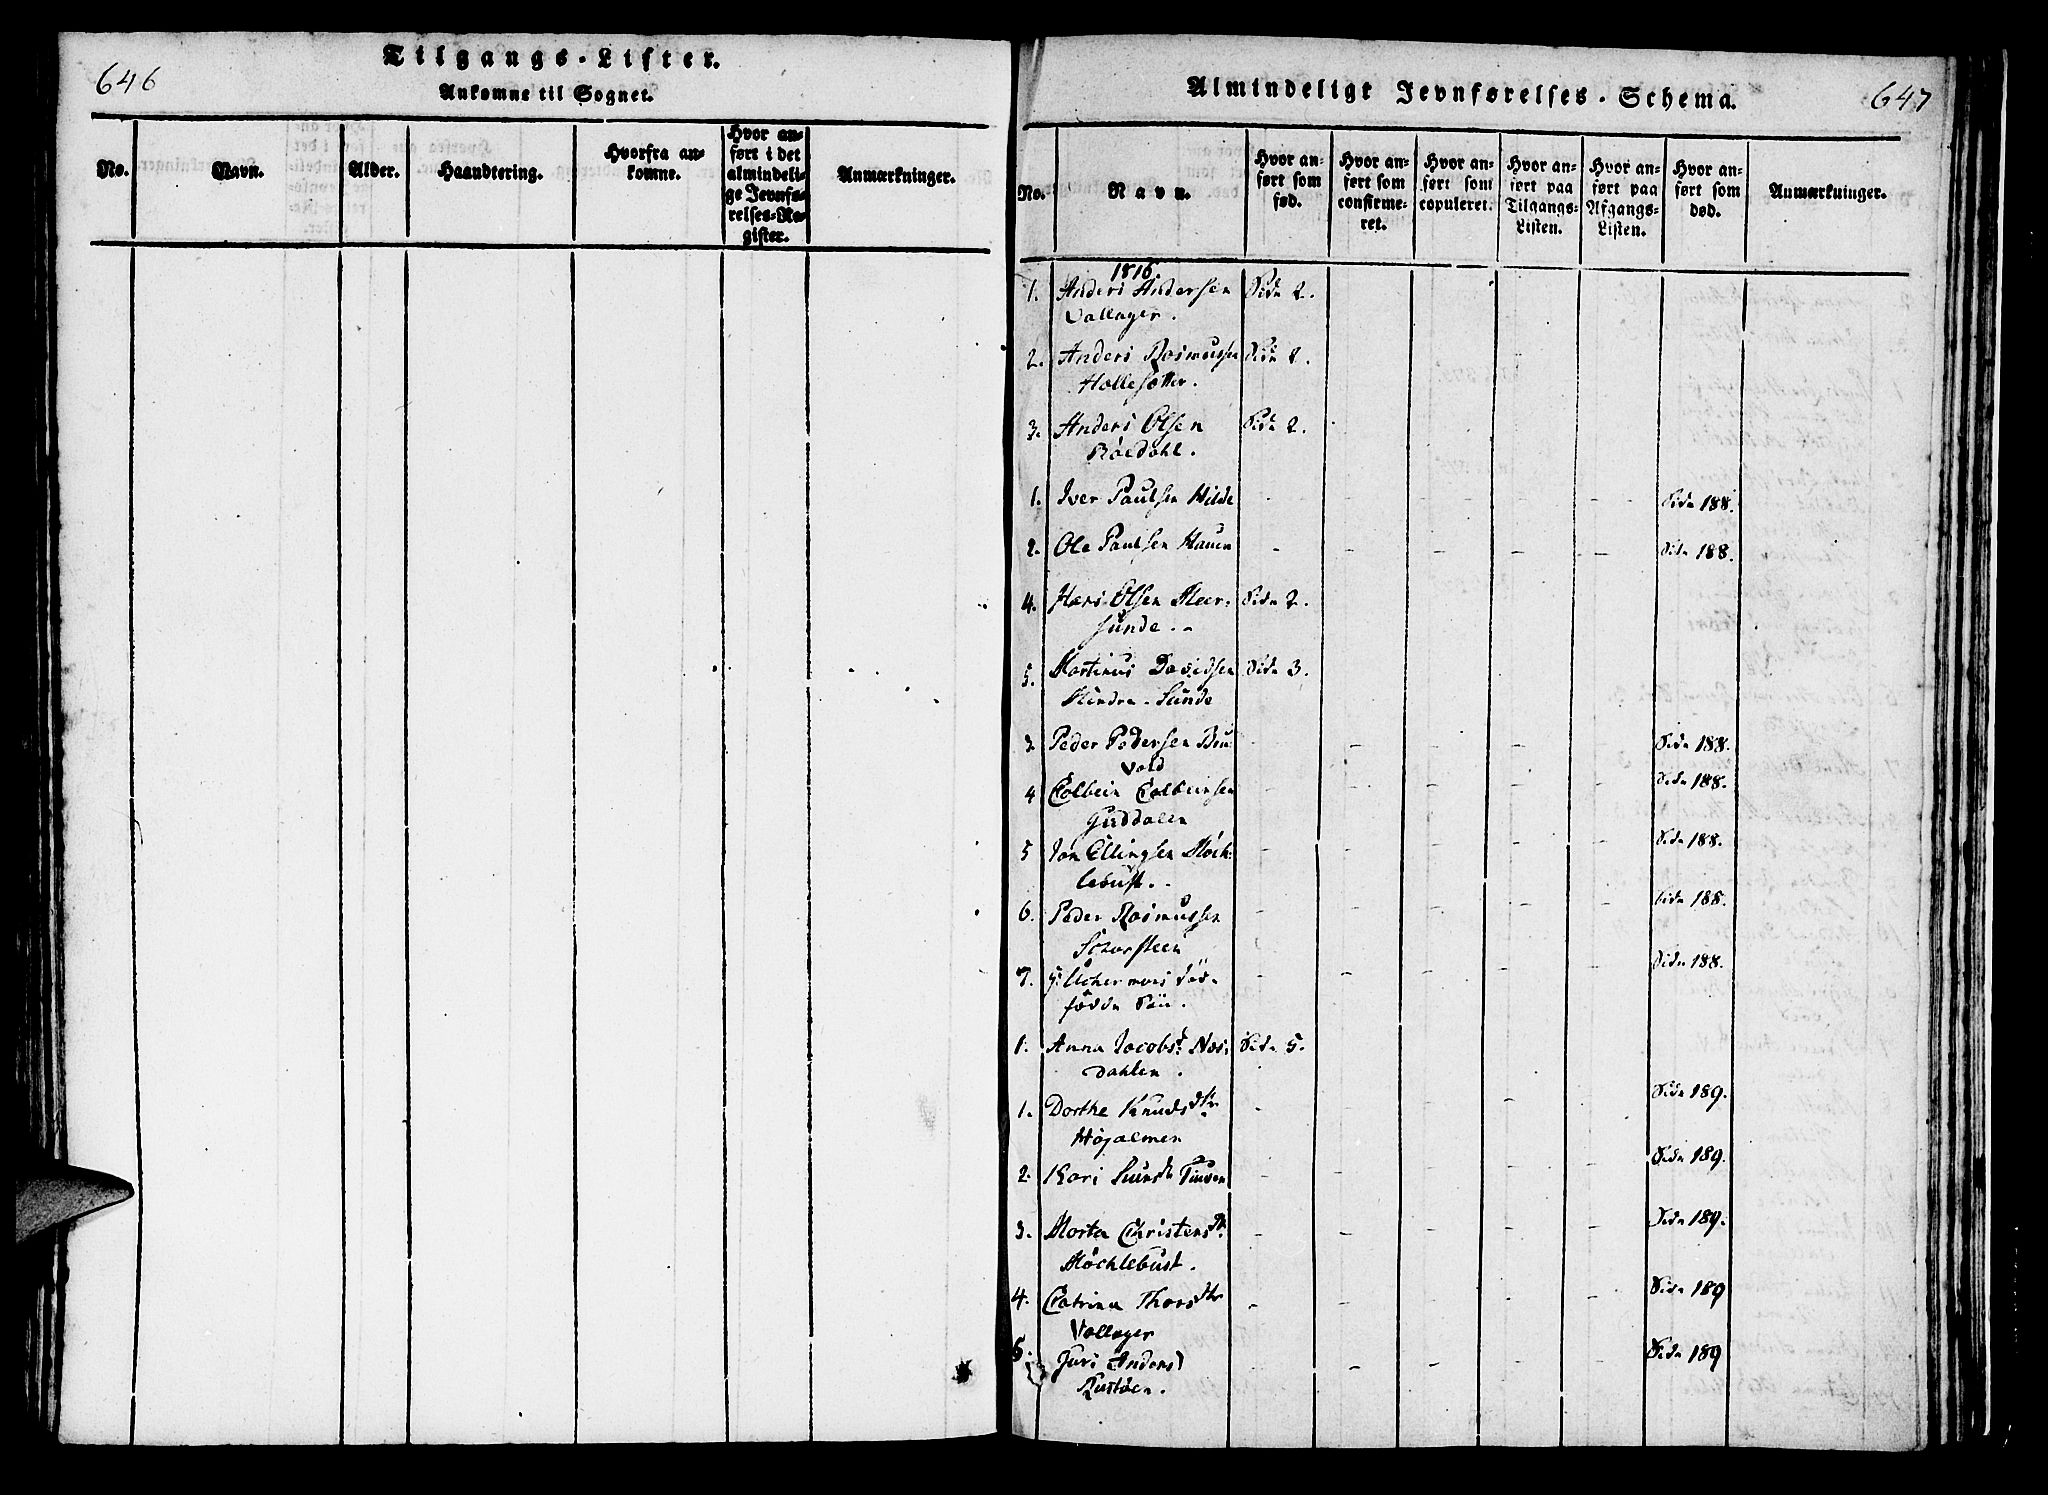 646
Tilgangs-Lister.
Ankomne til Sognet.
No. Navn. Alder. Haandtering. Hvorfra ankomne. Hvor anført i det almindelige Jevnførelses-Register. Anmærkninger.
Almindeligt Jevnførelses-Schema.
647
No. Navn. Hvor anført som fød. Hvor anført som confirmeret. Hvor anført som copuleret. Hvor anført paa Tilgangs-Listen. Hvor anført paa Afgangs-Listen. Hvor anført som død. Anmærkninger.
1816.
1. Anders Andersen Side 2.
Vallager.
2. Anders Rasmussen Side 2.
Hollesætter.
3. Anders Olsen Side 2.
Röedahl.
1. Iver Paulsen Hilde - - - - - Side 188.
2. Ole Paulsen Hauen - - - - - Side 188.
4. Hans Olsen Side 2.
sunde. -
5. Martinus Davidsen Side 3.
Sunde
3 Peder Pedersen - - - - - Side 188.
vold
4 Colbein Colbeinsen - - - - - Side 188.
Guddalen
5 Jon Ellingsen Möck: - - - - - Side 188.
lebust.
6. Peder Rasmussen - - - - - Side 188.
Schorsteen
7. - - - - - Side 188.
fødde
1. Anna Jacobsd. Nes: Side 5.
dahlen.
1. Dorthe Knudsdtr - - - - - Side 189.
Höjalmen
2. Kari - - - - - Side 189.
3. Marta Christensdtr. - - - - - Side 189.
Möchlebust.
4. Catrina Thorsdtr - - - - - Side 189
Vallager
5. Guri Andersd - - - - - Side 189
Rustöen.